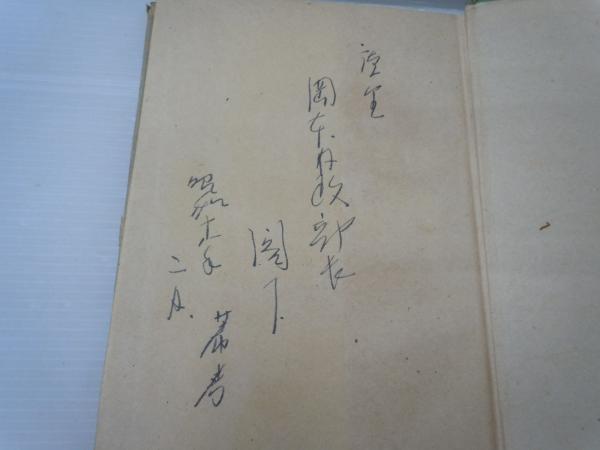 謹呈
岡本財政部長
閣下
昭和十六年
二月
著者